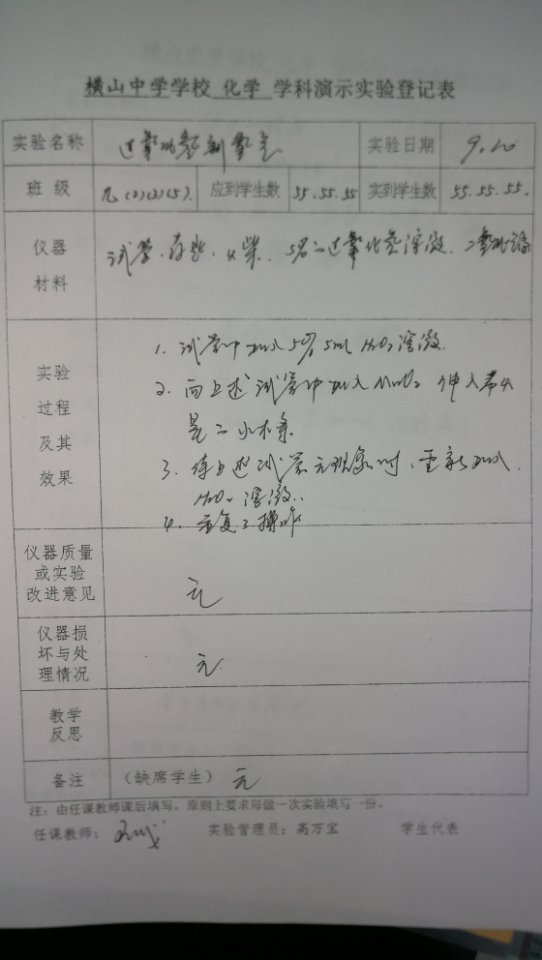 横山中学学校 化学 学科演示实验登记表
实验名称 过氧化氢制氧气 实验日期 9.20
班级 九(2)(3)(5) 应到学生数 55.55.55 实到学生数 55.55.55.
仪器
材料
试管、火柴、5%过氧化氢溶液、二氧化锰
实验
过程
及其
效果
1. 试管中加入5% 5mL H₂O₂溶液
2. 向上述试管中加入MnO₂ 伸入带火
星的小木条
3. 待上述试管无现象时,重新加入
H₂O₂溶液.
4. 重复2操作
仪器质量
或实验
改进意见
无
仪器损
坏与处
理情况
无
教学
反思
备注 (缺席学生) 无
注:由任课教师课后填写,原则上要求每做一次实验填写一份。
任课教师: 实验管理员:高万宝 学生代表